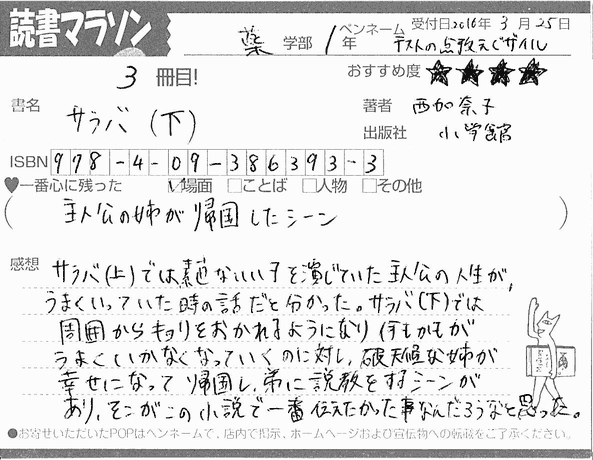 読書マラソン
薬 学部 1 年
ペンネーム 受付日2016年 3 月 25日
テストの点数えぐザイル
3 冊目!
おすすめ度 ★★★★
書名
サラバ (下)
著者 西加奈子
出版社 小学館
ISBN 978-4-09-386393-3
♥一番心に残った ☑場面 □ことば □人物 □その他
( 主人公の姉が帰国したシーン )
感想
サラバ(上)では、素直ないい子を演じていた主人公の人生が、
うまくいっていた時の話だと分かった。サラバ(下)では
周囲からキョリをおかれるようになり 何もかもが
うまくいかなくなっていくのに対し、破天候な姉が
幸せになって 帰国し、弟に説教をするシーンが
あり、そこがこの小説で一番伝えたかった事なんだろうなと思った。
●お寄せいただいたPOPはペンネームで、店内で掲示、ホームページおよび宣伝物への転載をご了承ください。